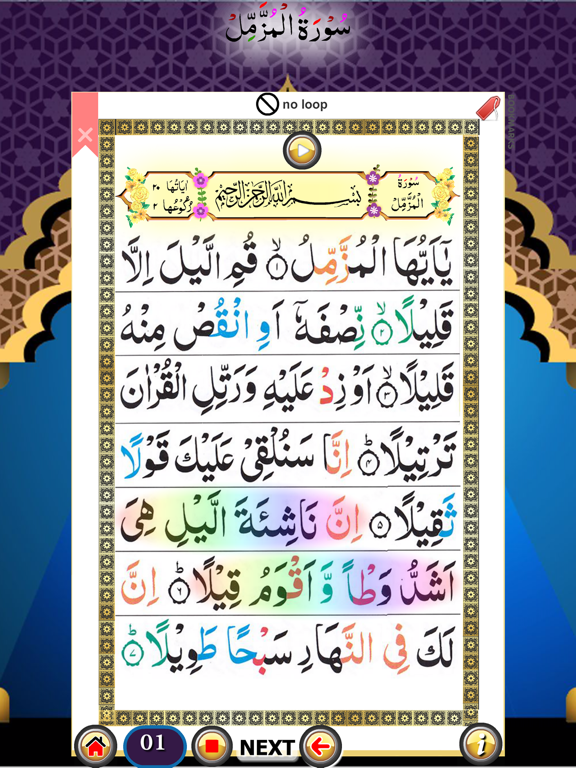 سُوْرَةُ الْمُزَّمِّلْ
no loop
سُوْرَةُ الْمُزَّمِّلْ
بِسْمِ اللّٰهِ الرَّحْمٰنِ الرَّحِيْمِ
اٰيَاتُهَا ٢٠
رُكُوْعُهَا ٢
يٰۤاَيُّهَا الْمُزَّمِّلُ ۙ‏﴿۱﴾ قُمِ الَّيْلَ اِلَّا
قَلِيْلًا ۙ‏﴿۲﴾ نِّصْفَهٗۤ اَوِ انْقُصْ مِنْهُ
قَلِيْلًا ۙ‏﴿۳﴾ اَوْ زِدْ عَلَيْهِ وَرَتِّلِ الْقُرْاٰنَ
تَرْتِيْلًا ؕ‏﴿۴﴾ اِنَّا سَنُلْقِىْ عَلَيْكَ قَوْلًا
ثَقِيْلًا ‏﴿۵﴾ اِنَّ نَاشِئَةَ الَّيْلِ هِىَ
اَشَدُّ وَطْاً وَّاَقْوَمُ قِيْلًا ؕ‏﴿۶﴾ اِنَّ
لَكَ فِى النَّهَارِ سَبْحًا طَوِيْلًا ؕ‏﴿۷﴾
01 NEXT i